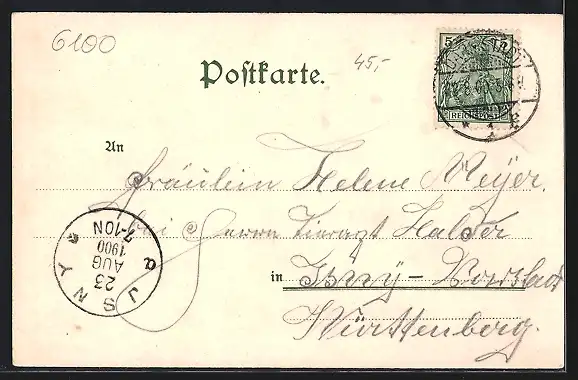 6100
45,-
Postkarte.
5
REICHSPOST
An
Fräulein Helene Meyer,
bei Herrn Tierarzt
in Isny - Vorstadt
Württemberg.
JSNY
23
AUG
1900
7-10N